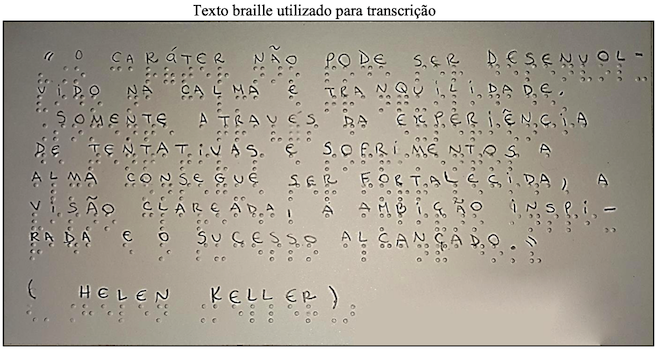 Texto braille utilizado para transcrição
" O CARÁTER NÃO PODE SER DESENVOL-
VIDO NA CALMA E TRANQUILIDADE.
SOMENTE ATRAVES DA EXPERIÊNCIA
DE TENTATIVAS E SOFRIMENTOS A
ALMA CONSEGUE SER FORTALECIDA, A
VISÃO CLAREADA, A AMBIÇÃO INSPI-
RADA E O SUCESSO ALCANÇADO."
( HELEN KELLER)